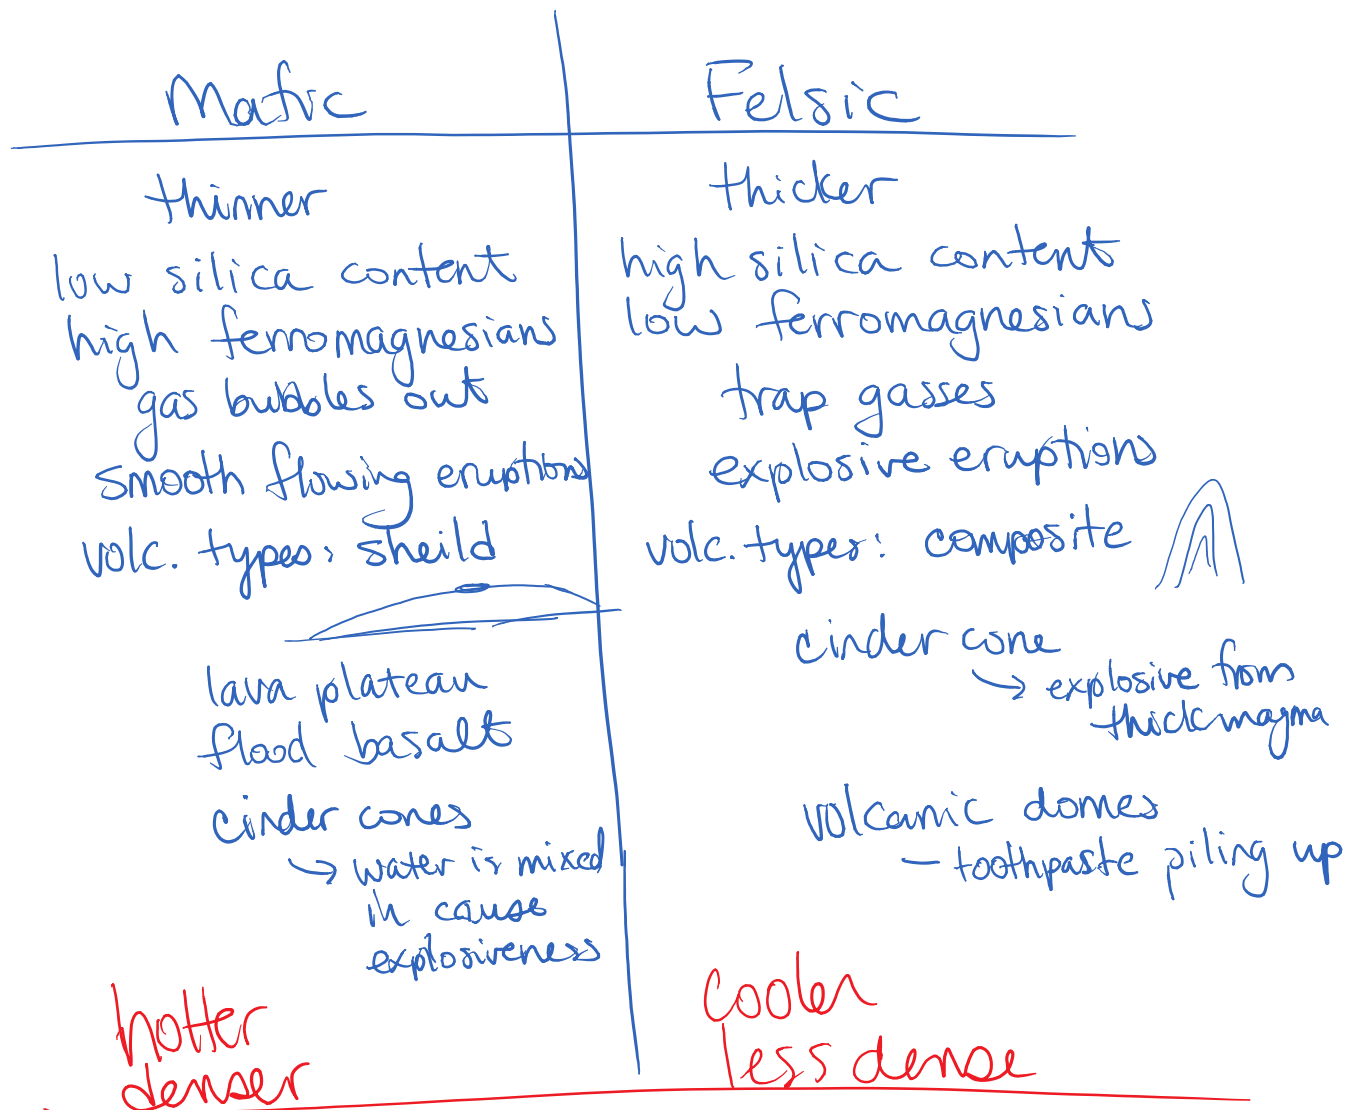 Mafic
thinner
low silica content
high ferromagnesians
gas bubbles out
smooth flowing eruptions
volc. types: sheild
lava plateau
flood basalt
cinder cones
→ water is mixed
in cause
explosiveness
hotter
denser
Felsic
thicker
high silica content
low ferromagnesians
trap gasses
explosive eruptions
volc. types: composite
cinder cone
→ explosive from
thick magma
volcanic domes
- toothpaste piling up
cooler
less dense